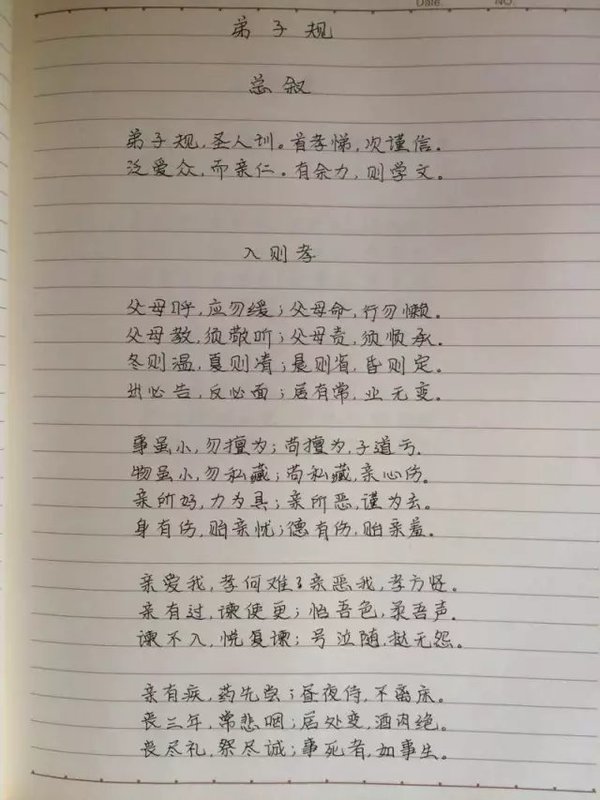 Date. NO.
弟子规
总叙
弟子规,圣人训。首孝悌,次谨信。
泛爱众,而亲仁。有余力,则学文。
入则孝
父母呼,应勿缓;父母命,行勿懒。
父母教,须敬听;父母责,须顺承。
冬则温,夏则凊;晨则省,昏则定。
出必告,反必面;居有常,业无变。
事虽小,勿擅为;苟擅为,子道亏。
物虽小,勿私藏;苟私藏,亲心伤。
亲所好,力为具;亲所恶,谨为去。
身有伤,贻亲忧;德有伤,贻亲羞。
亲爱我,孝何难;亲恶我,孝方贤。
亲有过,谏使更;怡吾色,柔吾声。
谏不入,悦复谏;号泣随,挞无怨。
亲有疾,药先尝;昼夜侍,不离床。
丧三年,常悲咽;居处变,酒肉绝。
丧尽礼,祭尽诚;事死者,如事生。